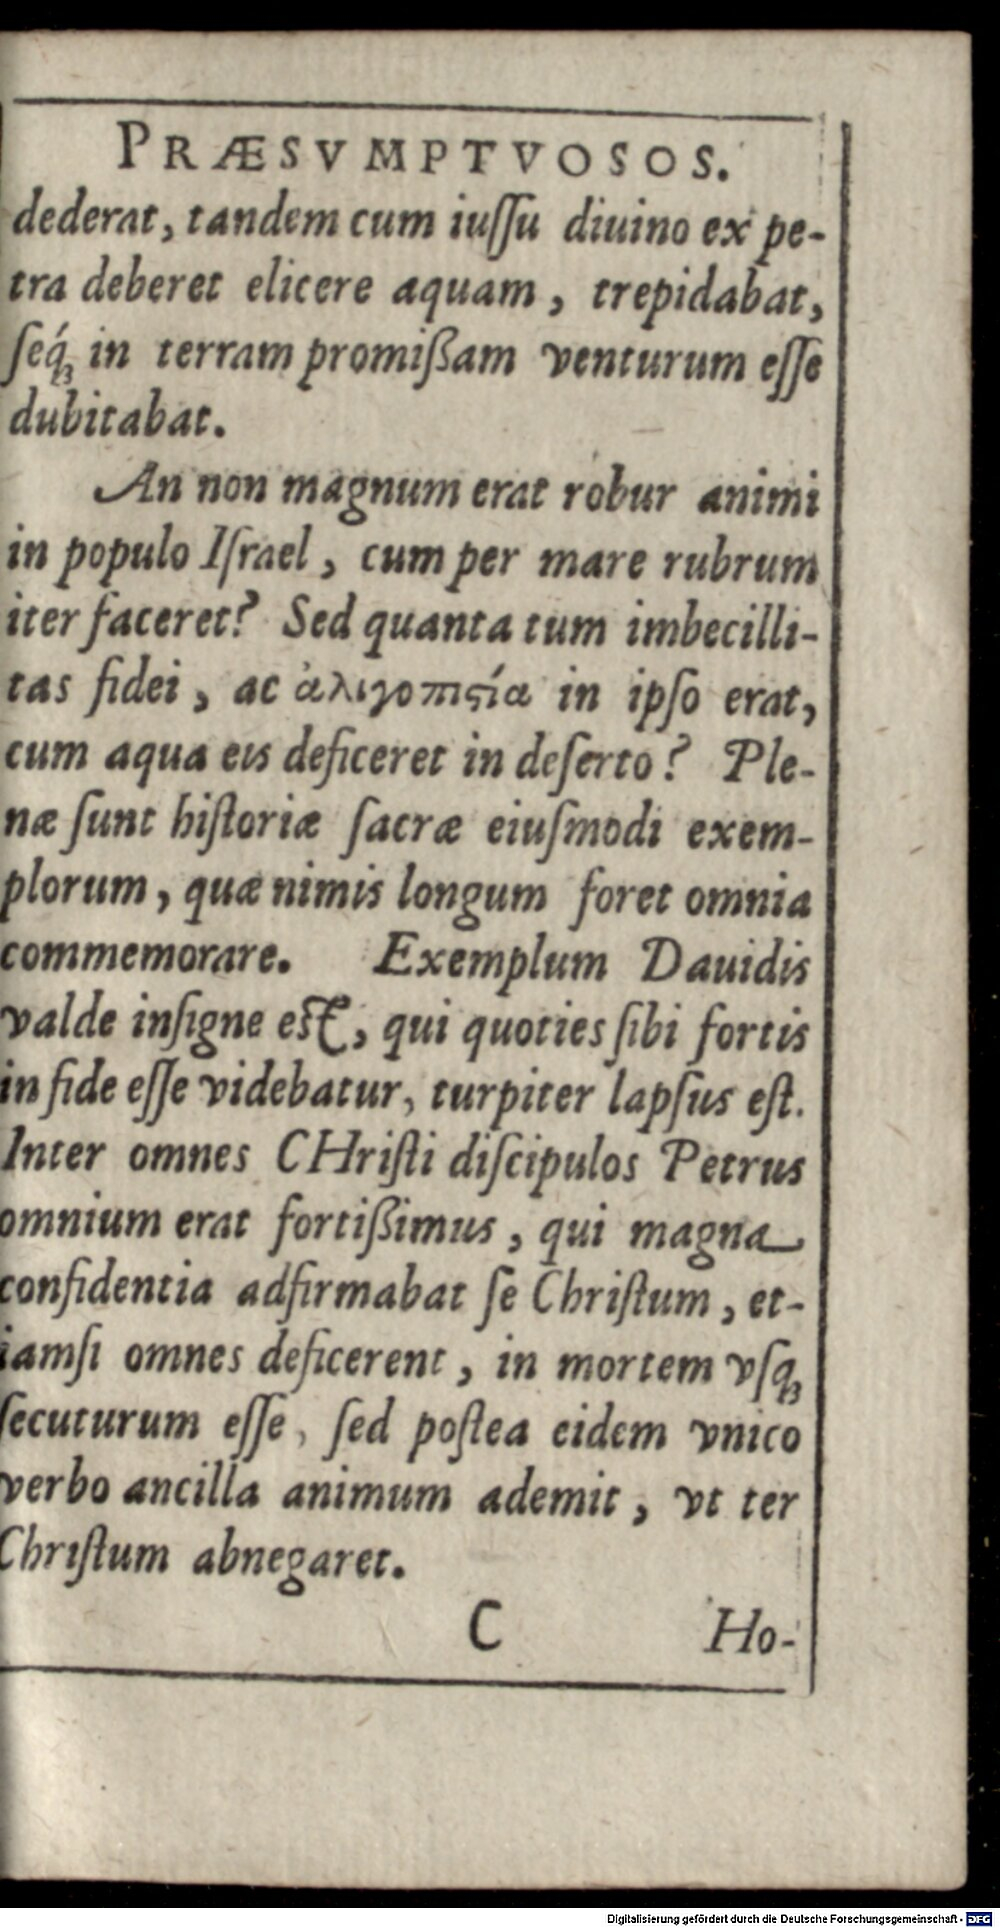 PRÆSVMPTVOSOS.
dederat, tandem cum iuſſu diuino ex pe-
tra deberet elicere aquam, trepidabat,
ſeq́ꝫ in terram promiſſam venturum eſſe
dubitabat.
An non magnum erat robur animi
in populo Iſrael, cum per mare rubrum
iter faceret? Sed quanta tum imbecilli-
tas fidei, ac ἀλιγοπιϛία in ipſo erat,
cum aqua eis deficeret in deſerto? Ple-
næ ſunt hiſtoriæ ſacræ eiuſmodi exem-
plorum, quæ nimis longum foret omnia
commemorare. Exemplum Dauidis
valde inſigne eſt, qui quoties ſibi fortis
in fide eſſe videbatur, turpiter lapſus eſt.
Inter omnes CHriſti diſcipulos Petrus
omnium erat fortißimus, qui magna
confidentia adfirmabat ſe Chriſtum, et-
iamſi omnes deficerent, in mortem vſqꝫ
ſecuturum eſſe, ſed poſtea eidem vnico
verbo ancilla animum ademit, vt ter
Chriſtum abnegaret.
C Ho-
Digitalisierung gefördert durch die Deutsche Forschungsgemeinschaft - DFG